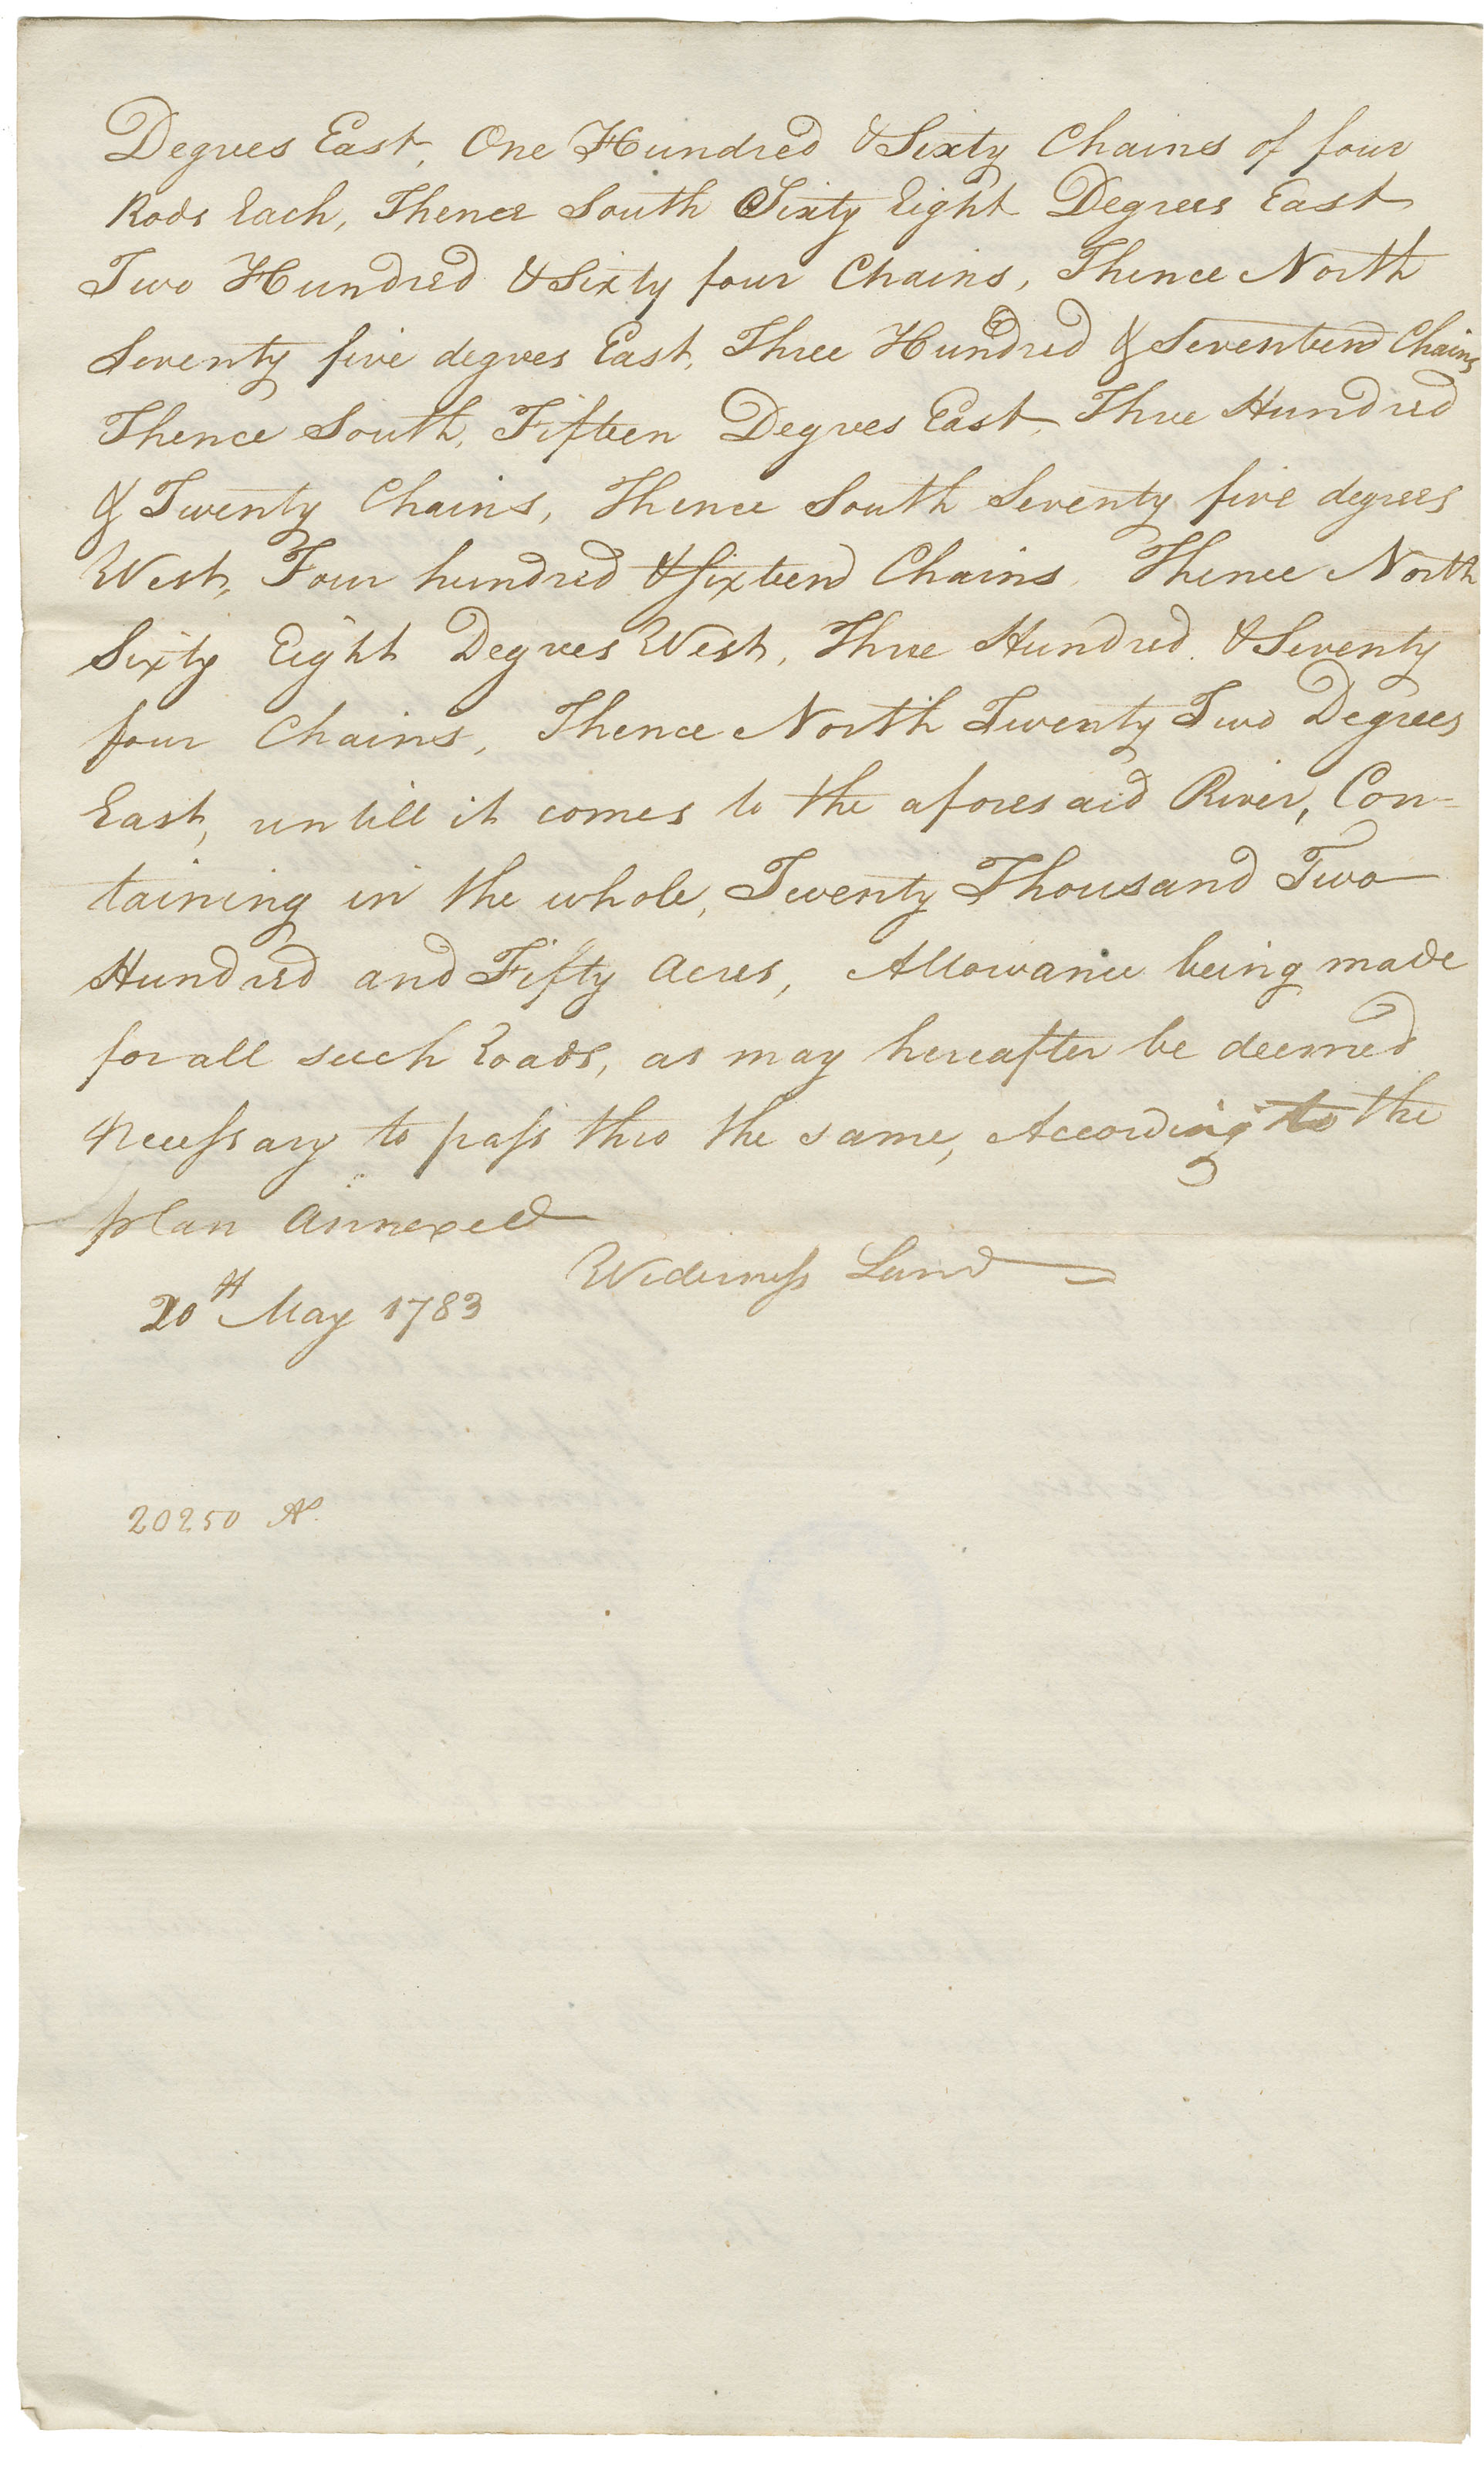 Degrees East, One Hundred & Sixty Chains of four
Rods Each, Thence South Sixty Eight Degrees East
Two Hundred & Sixty four Chains, Thence North
Seventy five degrees East, Three Hundred & Seventeen Chains
Thence South, Fifteen Degrees East, Three Hundred
& Twenty Chains, Thence South Seventy five degrees
West, Four hundred & Sixteen Chains, Thence North
Sixty Eight Degrees West, Three Hundred & Seventy
four Chains, Thence North Twenty Two Degrees
East, untill it comes to the aforesaid River, Con-
taining in the whole, Twenty Thousand Two
Hundred and Fifty Acres, Allowance being made
for all such Roads, as may hereafter be deemed
Necessary to pass thro the same, According to the
plan Annexed
Wederness Land
20th May 1783
20250 As.